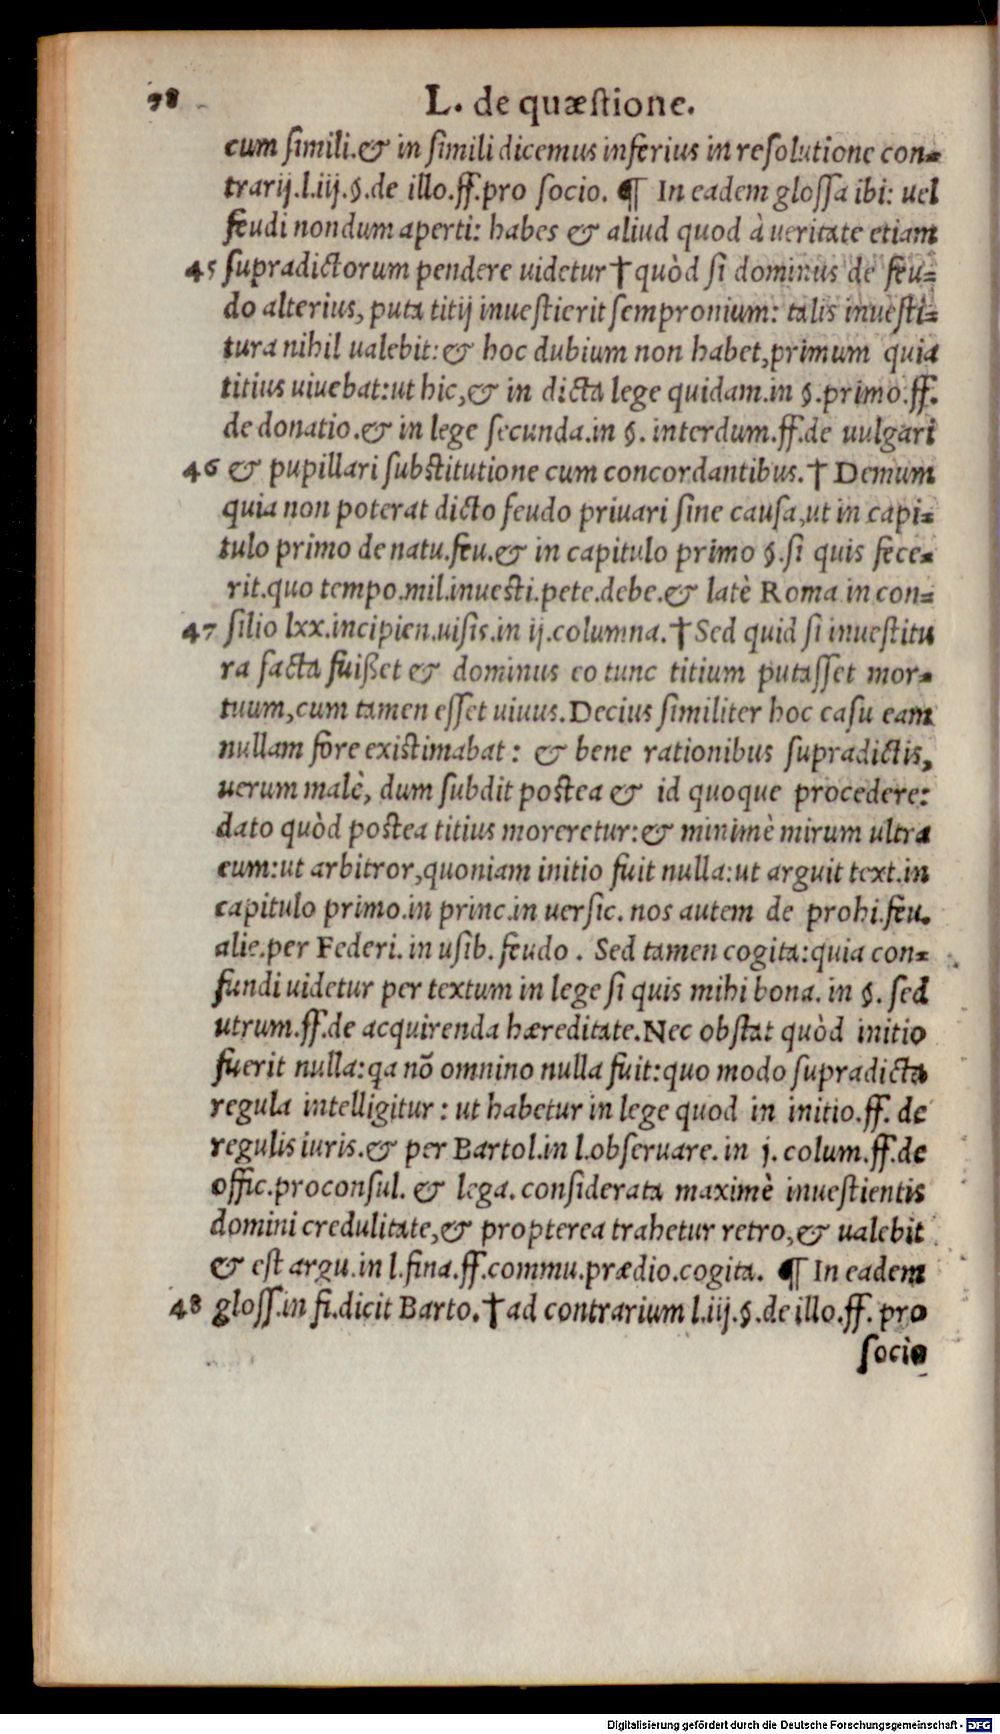 78 L. de quæſtione.
cum ſimili.& in ſimili dicemus inferius in reſolutione con-
trarij.l.iij.§.de illo.ff.pro ſocio. ¶ In eadem gloſſa ibi: uel
feudi nondum aperti: habes & aliud quod à ueritate etiam
45 ſupradictorum pendere uidetur † quòd ſi dominus de feu-
do alterius, puta titij inueſtierit ſempronium: talis inueſti-
tura nihil ualebit: & hoc dubium non habet, primum quia
titius uiuebat: ut hic, & in dicta lege quidam.in §.primo.ff.
de donatio.& in lege ſecunda.in §. interdum.ff.de uulgari
46 & pupillari ſubſtitutione cum concordantibus. † Demum
quia non poterat dicto feudo priuari ſine cauſa, ut in capi-
tulo primo de natu.feu.& in capitulo primo §.ſi quis fece-
rit.quo tempo.mil.inueſti.pete.debe.& latè Roma in con-
47 ſilio lxx.incipien.uiſis.in ij.columna. † Sed quid ſi inueſtitu
ra facta fuißet & dominus eo tunc titium putaſſet mor-
tuum, cum tamen eſſet uiuus. Decius ſimiliter hoc caſu eam
nullam fore exiſtimabat: & bene rationibus ſupradictis,
uerum malè, dum ſubdit poſtea & id quoque procedere:
dato quòd poſtea titius moreretur: & minimè mirum ultra
eum: ut arbitror, quoniam initio fuit nulla: ut arguit text.in
capitulo primo.in princ.in uerſic. nos autem de prohi.feu.
alie.per Federi. in uſib. feudo . Sed tamen cogita: quia con-
fundi uidetur per textum in lege ſi quis mihi bona. in §. ſed
utrum.ff.de acquirenda hæreditate. Nec obſtat quòd initio
fuerit nulla: qa nõ omnino nulla fuit: quo modo ſupradicta
regula intelligitur : ut habetur in lege quod in initio.ff. de
regulis iuris.& per Bartol.in l.obſeruare. in j. colum.ff.de
offic.proconſul. & lega. conſiderata maximè inueſtientis
domini credulitate, & propterea trahetur retro, & ualebit
& eſt argu.in l.fina.ff.commu.prædio.cogita. ¶ In eadem
48 gloſſ.in fi.dicit Barto. † ad contrarium l.iij.§.de illo.ff. pro
ſocio
Digitalisierung gefördert durch die Deutsche Forschungsgemeinschaft - DFG